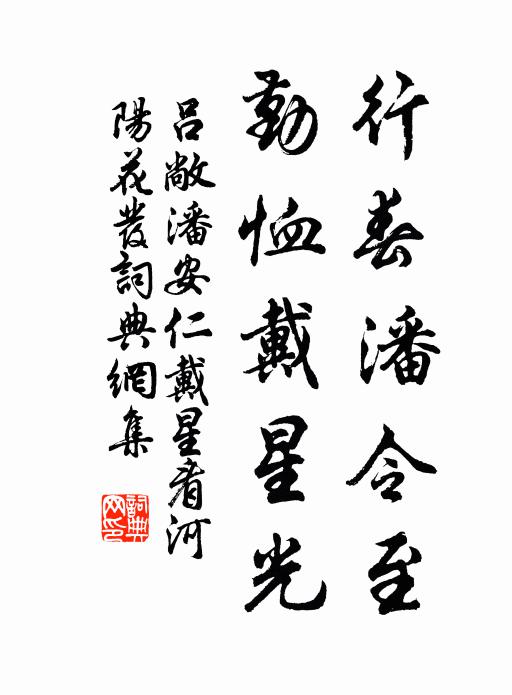 行春潘令至
勤恤戴星光
呂敞潘安仁戴星看河
陽花發詞典網集
詞典
网印